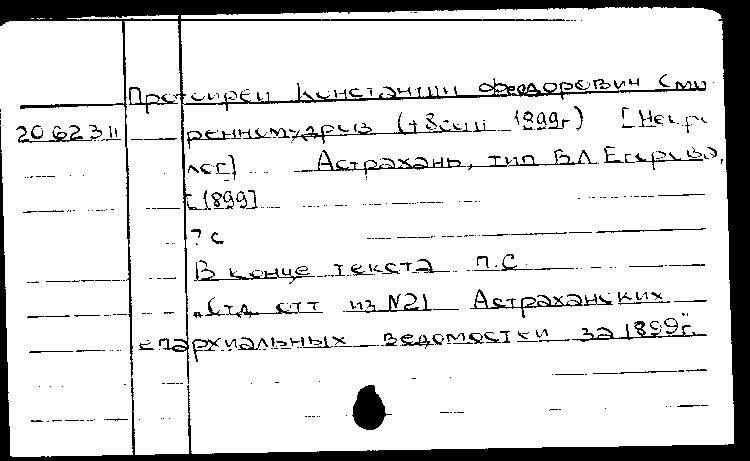 Протоиреи Константин Феодорович Сми
20 62 311 ренномудров (+8 сент 1899г) [Некро
лог] Астрахань, тип В Л Егорова,
[1899]
7 с
В конце текста п.с
„Отд отт из N21 Астраханских
епархиальных ведомостеи за 1899г."